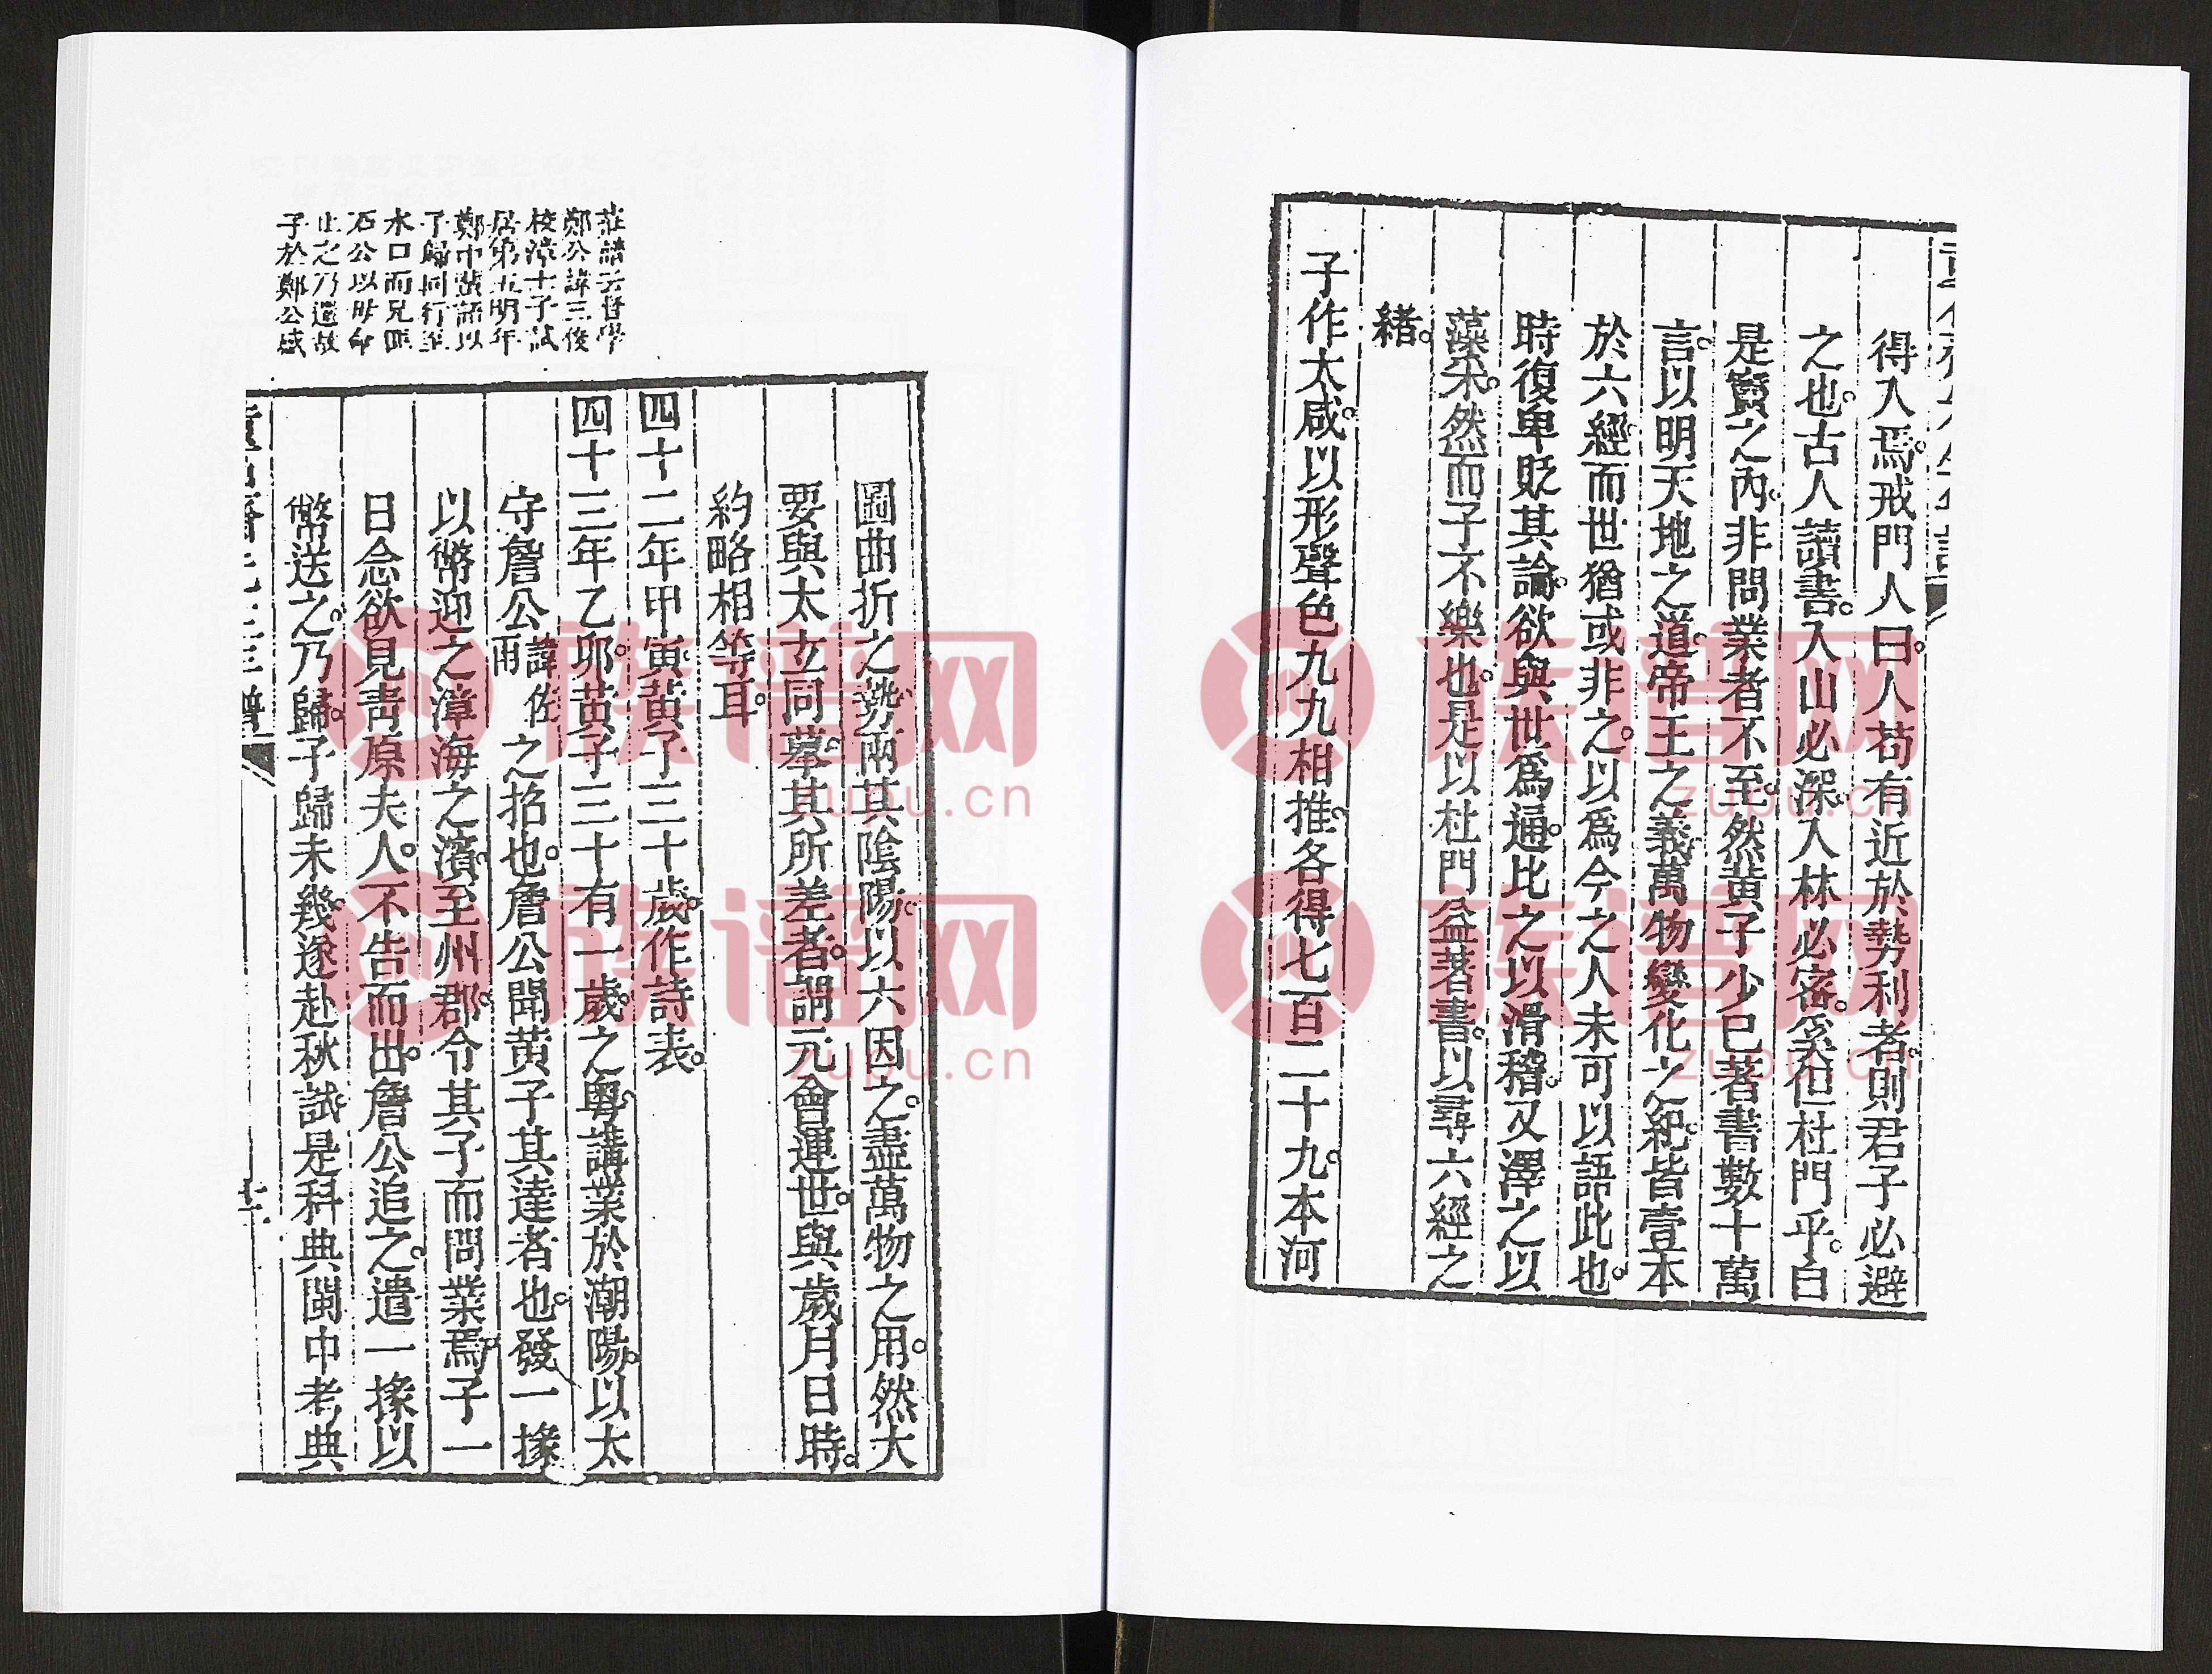 得入焉戒門人曰人苟有近於勢利者則君子必避
之也古人讀書入山必深入林必密奚但杜門乎自
是竇之內非問業者不至然黃子少已著書數十萬
言以明天地之道帝王之義萬物變化之紀皆壹本
於六經而世猶或非之以爲今之人未可以語此也
時復卑貶其論欲與世爲通比之以滑稽又澤之以
藻采然而子不樂也是以杜門益著書以尋六經之
緒
子作太咸以形聲色九九相推各得七百二十九本河
圖曲折之勢兩其陰陽以六因之盡萬物之用然大
要與太玄同摹其所差者謂元會運世與歲月日時
約略相等耳
四十二年甲寅黃子三十歲作詩表
四十三年乙卯黃子三十有一歲之粵講業於潮陽以太
守詹公諱佐雨之招也詹公聞黃子其達者也發一掾
以幣迎之漳海之濱至州郡令其子而問業焉子一
日念欲見青原夫人不告而出詹公追之遣一掾以
幣送之乃歸子歸未幾遂赴秋試是科典閩中考典
莊譜云督學
鄭公諱三俊
校漳士子試
居第五明年
鄭巾
子歸同行至
水口而兄
石公以母命
止之乃還故
子於鄭公感
族谱网
zupu.cn
族谱网
zupu.cn
族谱网
zupu.cn
族谱网
zupu.cn